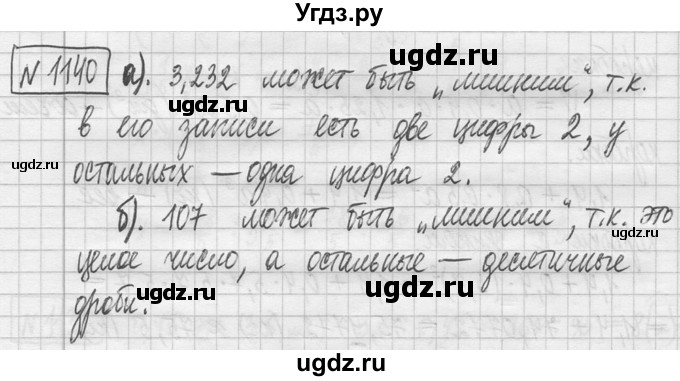 Угдз.ру
№ 1140 а). 3,232 может быть „лишним“, т.к.
в его записи есть две цифры 2, у
остальных — одна цифра 2.
б). 107 может быть „лишним“, т.к. это
целое число, а остальные — десятичные
дроби.
ugdz.ru
ugdz.ru
ugdz.ru
ugdz.ru
ugdz.ru
ugdz.ru
ugdz.ru
ugdz.ru
ugdz.ru